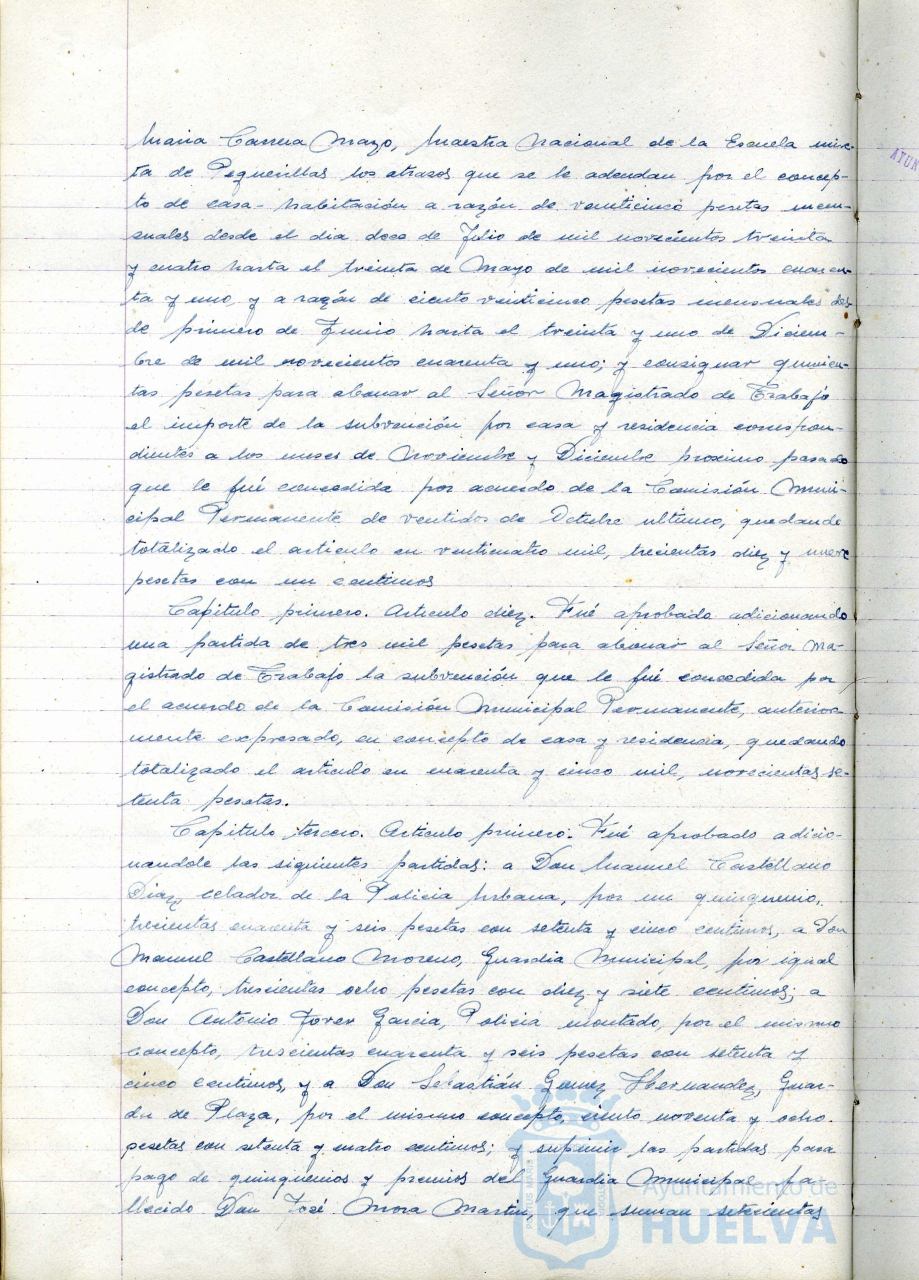 Maria Correa Mazo, Maestra Nacional de la Escuela mix-
ta de Pequerillas los atrasos que se le adeudan por el concep-
to de casa-habitación a razón de veinticinco pesetas men-
suales desde el dia doce de Julio de mil novecientos treinta
y cuatro hasta el treinta de Mayo de mil novecientos cuaren-
ta y uno, y a razón de ciento venticinco pesetas mensuales des-
de primero de Junio hasta el treinta y uno de Diciem-
bre de mil novecientos cuarenta y uno; y consignar quinien-
tas pesetas para abonar al Señor Magistrado de Trabajo
el importe de la subvención por casa y residencia correspon-
dientes a los meses de Noviembre y Diciembre proximo pasado
que le fué concedida por acuerdo de la Comisión Muni-
cipal Permanente de ventidos de Octubre ultimo, quedando
totalizado el articulo en venticuatro mil, trecientas diez y nueve
pesetas con un centimos
Capitulo primero. Articulo diez. Fué aprobado adicionando
una partida de tres mil pesetas para abonar al Señor Ma-
gistrado de Trabajo la subvención que le fué concedida por
el acuerdo de la Comisión Municipal Permanente, anterior-
mente expresado, en concepto de casa y residencia, quedando
totalizado el articulo en cuarenta y cinco mil, novecientas se-
tenta pesetas.
Capitulo tercero. Articulo primero. Fué aprobado adicio-
nandole las siguientes partidas: a Don Manuel Castellano
Diaz, celador de la Policia Urbana, por un quinquenio,
trecientas cuarenta y seis pesetas con setenta y cinco centimos, a Don
Manuel Castellano Moreno, Guardia Municipal, por igual
concepto, trescientas ocho pesetas con diez y siete centimos; a
Don Antonio Tover Garcia, Policia montado, por el mismo
concepto, trescientas cuarenta y seis pesetas con setenta y
cinco centimos, y a Don Sebastián Gomez Hernandez, Guar-
da de Plaza, por el mismo concepto, ciento noventa y ocho
pesetas con setenta y cuatro centimos; y suprimir las partidas para
pago de quinquenios y premios del Guardia Municipal fa-
llecido Don José Mora Martin, que suman setecientas
Ayuntamiento de
HUELVA